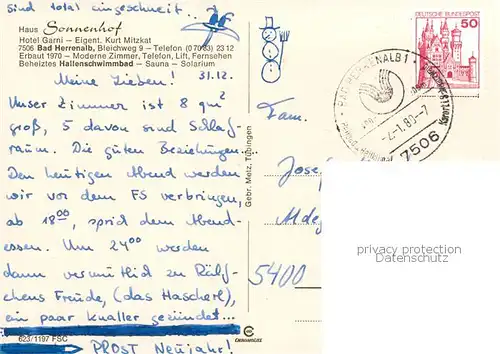 sind total eingeschneit...
Haus Sonnenhof
Hotel Garni – Eigent. Kurt Mitzkat
7506 Bad Herrenalb, Bleichweg 9 – Telefon (07083) 23 12
Erbaut 1970 – Moderne Zimmer, Telefon, Lift, Fernsehen
Beheiztes Hallenschwimmbad – Sauna – Solarium
Meine Lieben! 31.12.
Unser Zimmer ist 8 qm²
groß, 5 davon sind Schlaf-
raum. Die guten Beziehungen...
Den heutigen Abend werden
wir vor dem FS verbringen,
ab 18⁰⁰, sprich dem Abend-
essen. Um 24⁰⁰ werden
dann vermutlich zu Rälf-
chens Freude, (das Hascherl),
ein paar Knaller gezündet...
623/1197 FSC
PROST Neujahr!
Gebr. Metz, Tübingen
CHROMOLUX
DEUTSCHE BUNDESPOST
50
BAD HERRENALB 1
-2.-1.80-7
7506
Fam.
Josef
Aldeg
5400
privacy protection
DATENSCHUTZ